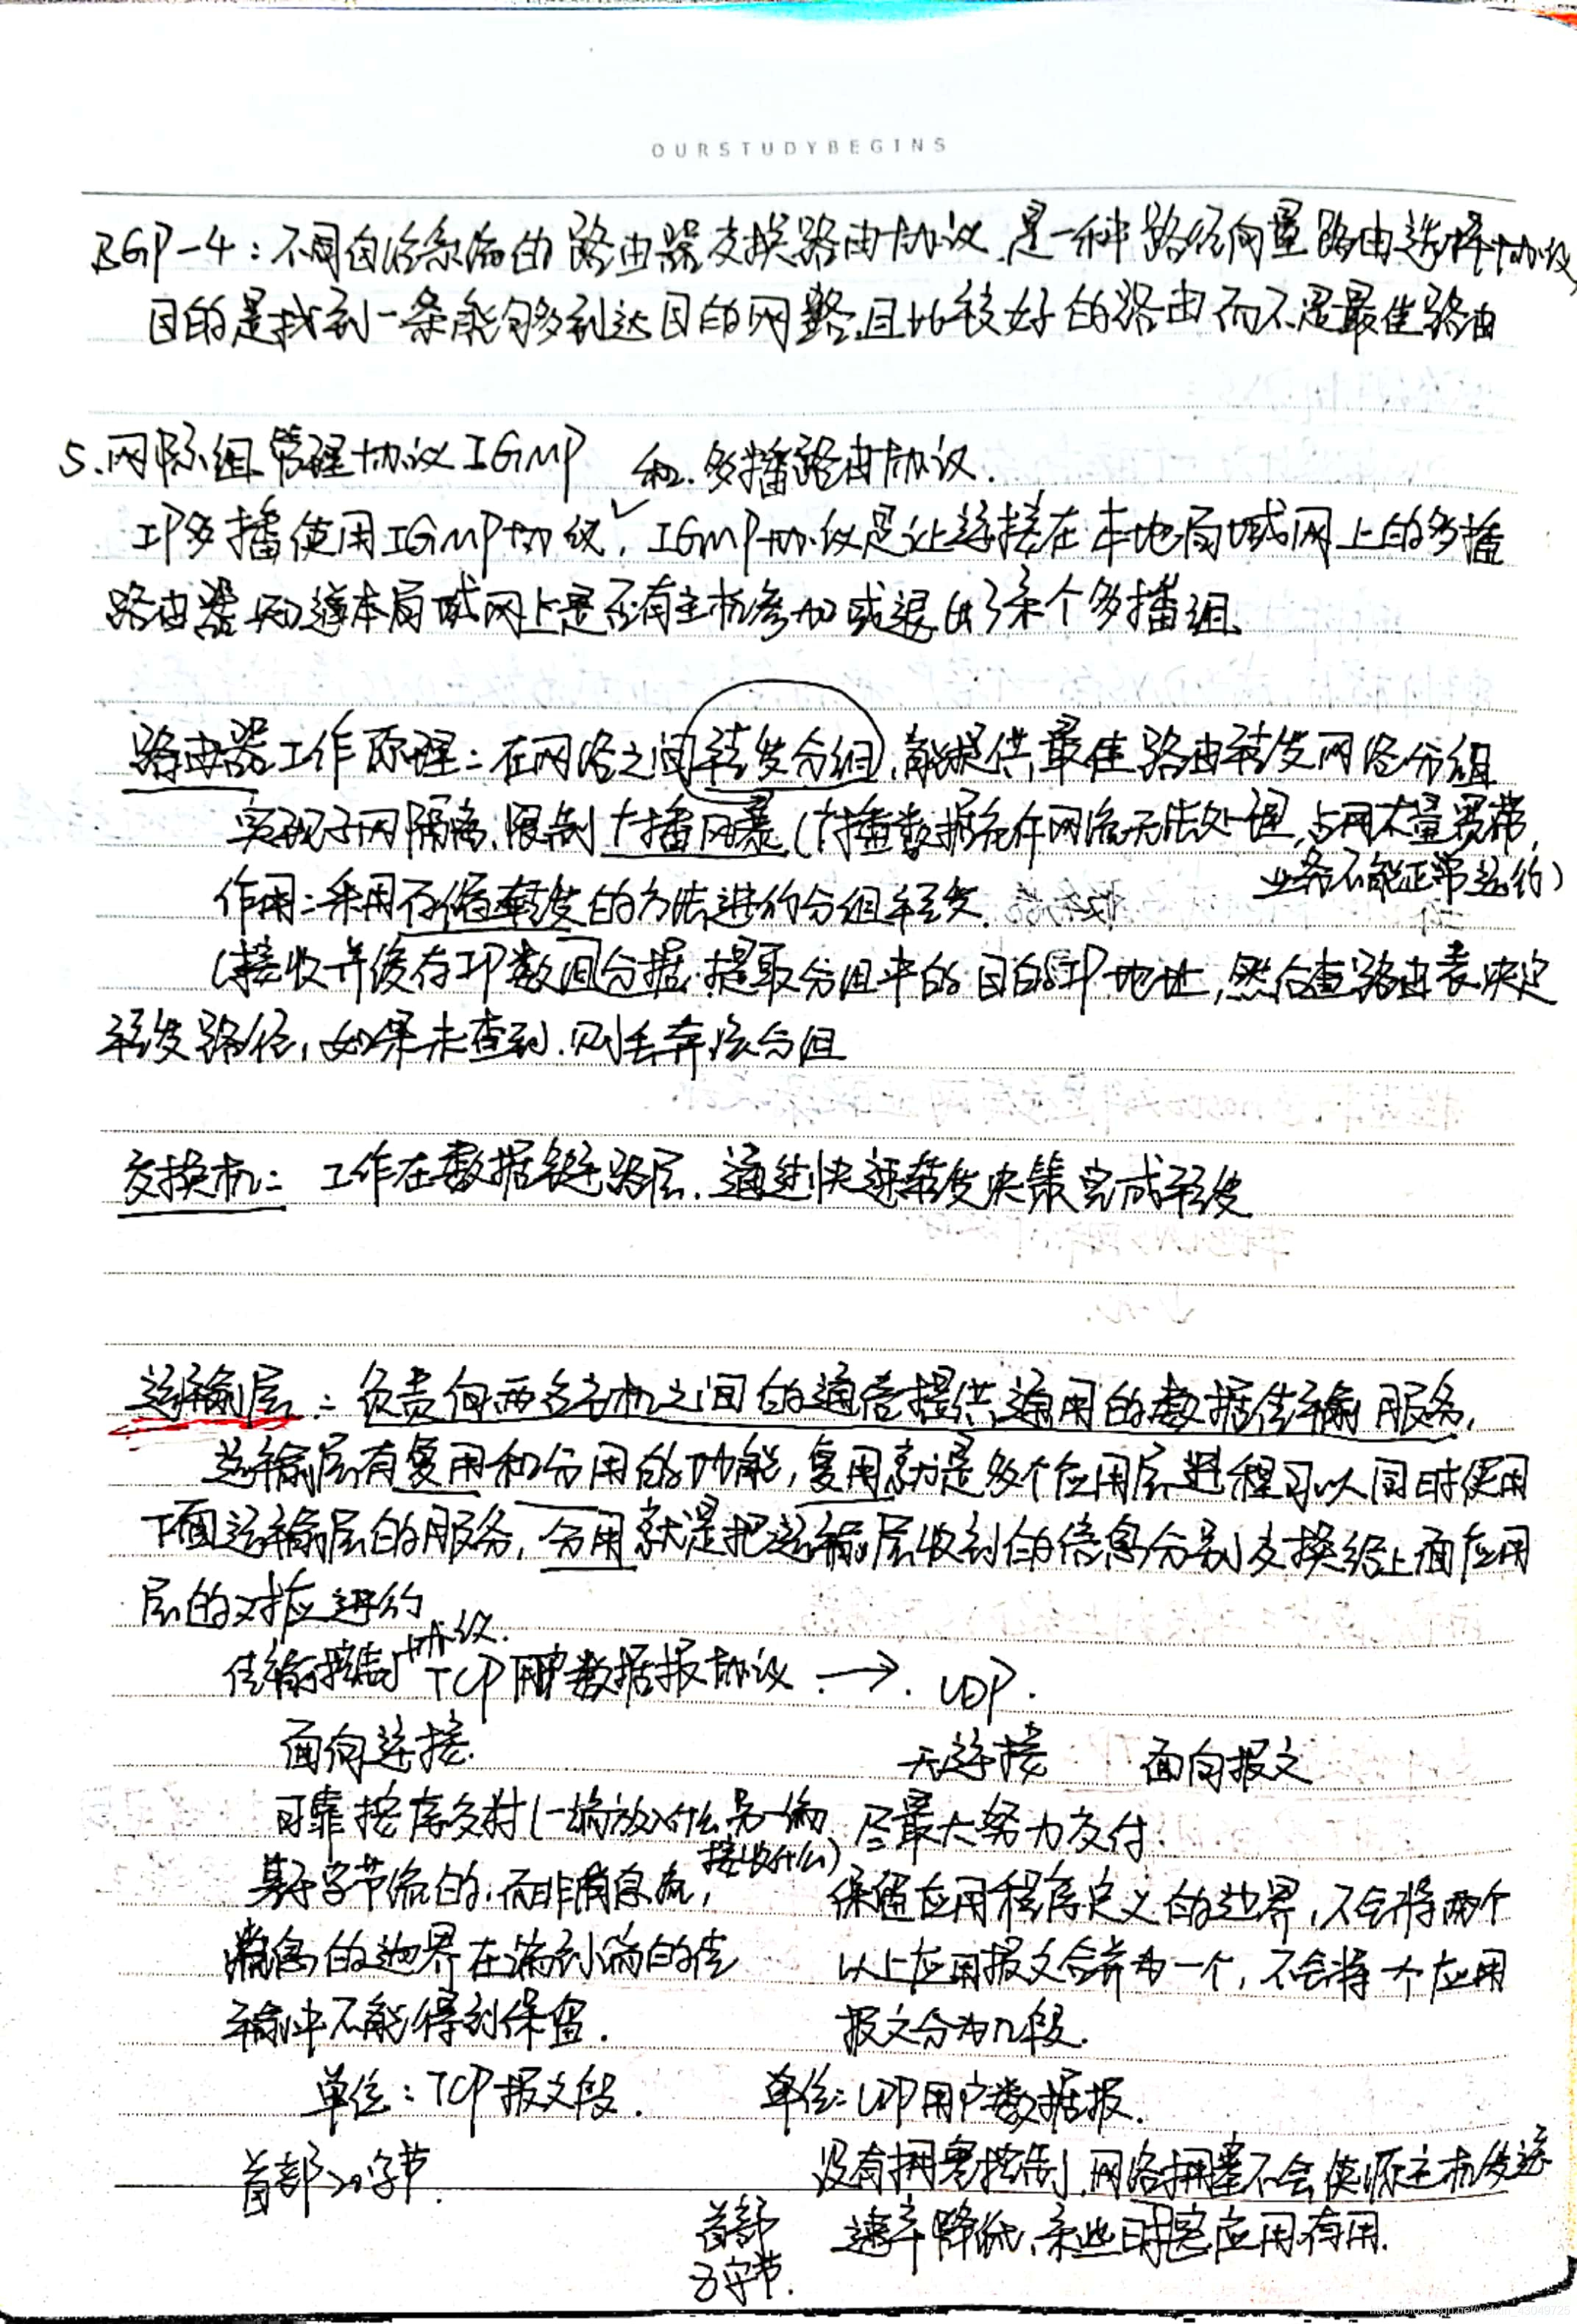 OURSTUDYBEGINS
BGP-4:不同自治系统的路由器交换路由协议,是一种路径向量路由选择协议,
目的是找到一条能够到达目的网络且比较好的路由而不是最佳路由
5.网际组管理协议IGMP 和.多播路由协议.
IP多播使用IGMP协议,IGMP协议是让连接在本地局域网上的多播
路由器知道本局域网上是否有主机参加或退出了某个多播组.
路由器工作原理:在网络之间转发分组,能提供最佳路由转发网络分组
实现子网隔离,限制广播风暴(广播数据在网络无法处理,占网大量宽带,
业务不能正常运行)
作用:采用存储转发的方法进行分组转发.
(接收并缓存IP数间分据,提取分组中的目的IP地址,然后查路由表决定
转发路径,如果未查到,则丢弃该分组
交换机: 工作在数据链路层,通过快速转发决策完成转发
运输层:负责向两名主机之间的通信提供通用的数据传输服务,
运输层有复用和分用的功能,复用就是多个应用层进程可以同时使用
下面运输层的服务,分用就是把运输层收到的信息分别交换给上面应用
层的对应进行
传输控制协议.TCP 用户数据报协议.→. UDP.
面向连接. 无连接 面向报文
可靠按序交付(一端放入什么另一端接收什么) 尽最大努力交付.
基于字节流的,而非消息流, 保留应用程序定义的边界,不会将两个
消息的边界在端到端的传 以上应用报文合并为一个,不会将一个应用
输中不能得到保留. 报文分为几段.
单位:TCP报文段. 单位:UDP用户数据报.
首部20字节. 没有拥塞控制,网络拥塞不会使源主机发送
首部 速率降低,某些时实应用有用.
8字节.